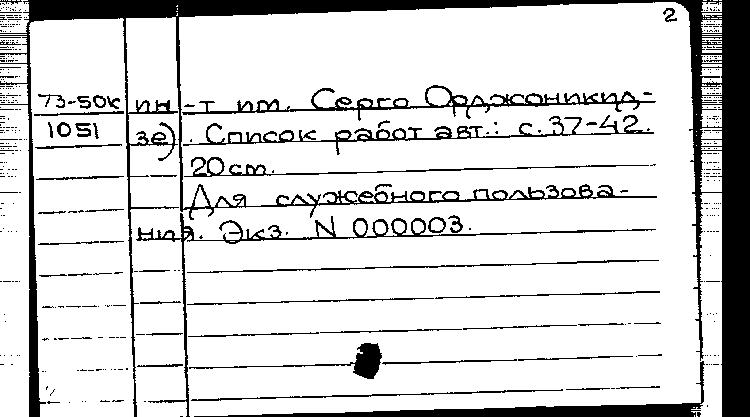 2
73-50к ин-т им. Серго Орджоникид-
1051 зе). Список работ авт.: с. 37-42.
20 см.
Для служебного пользова-
ния. Экз. N 000003.